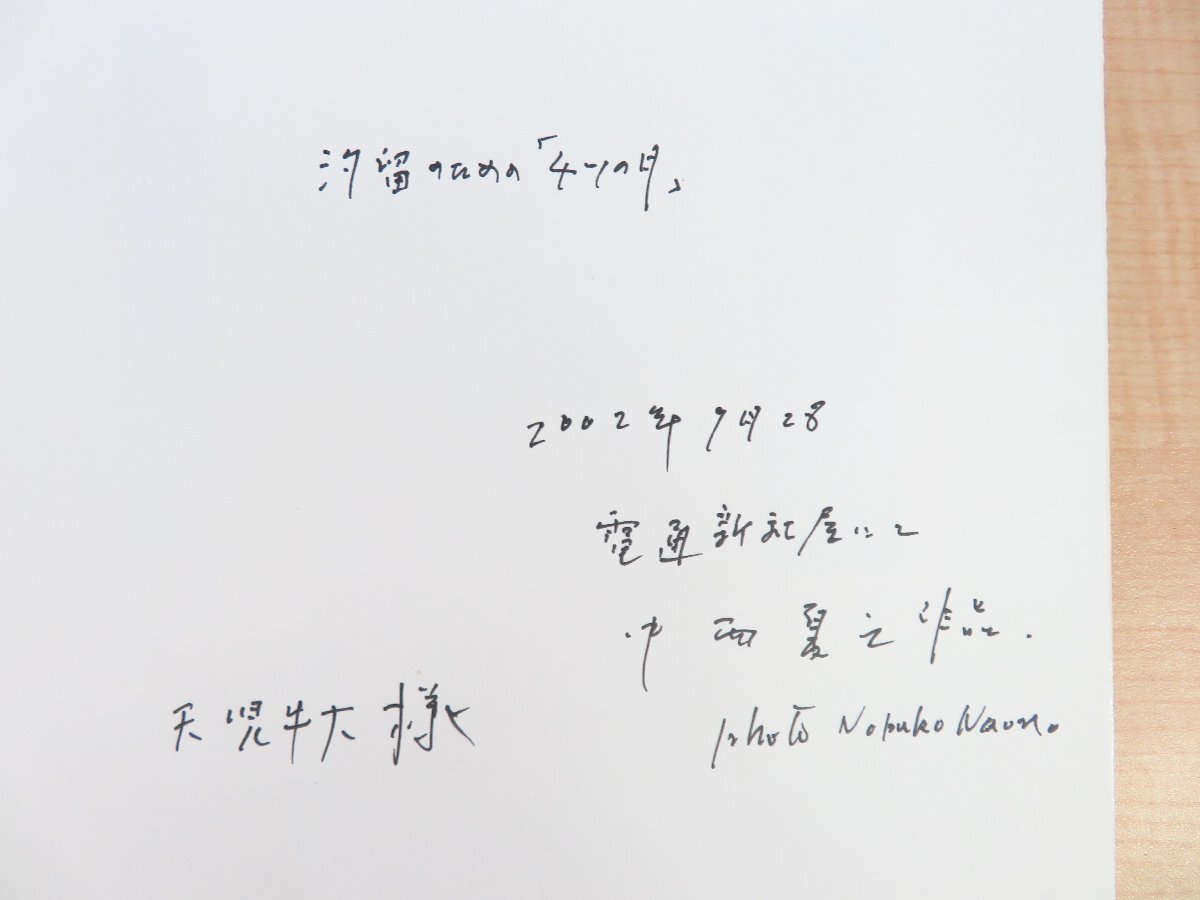 汐留のための「4つの月」
2002年9月28
電通新社屋にて
中西夏之作品.
天児牛大 様
photo Nobuko